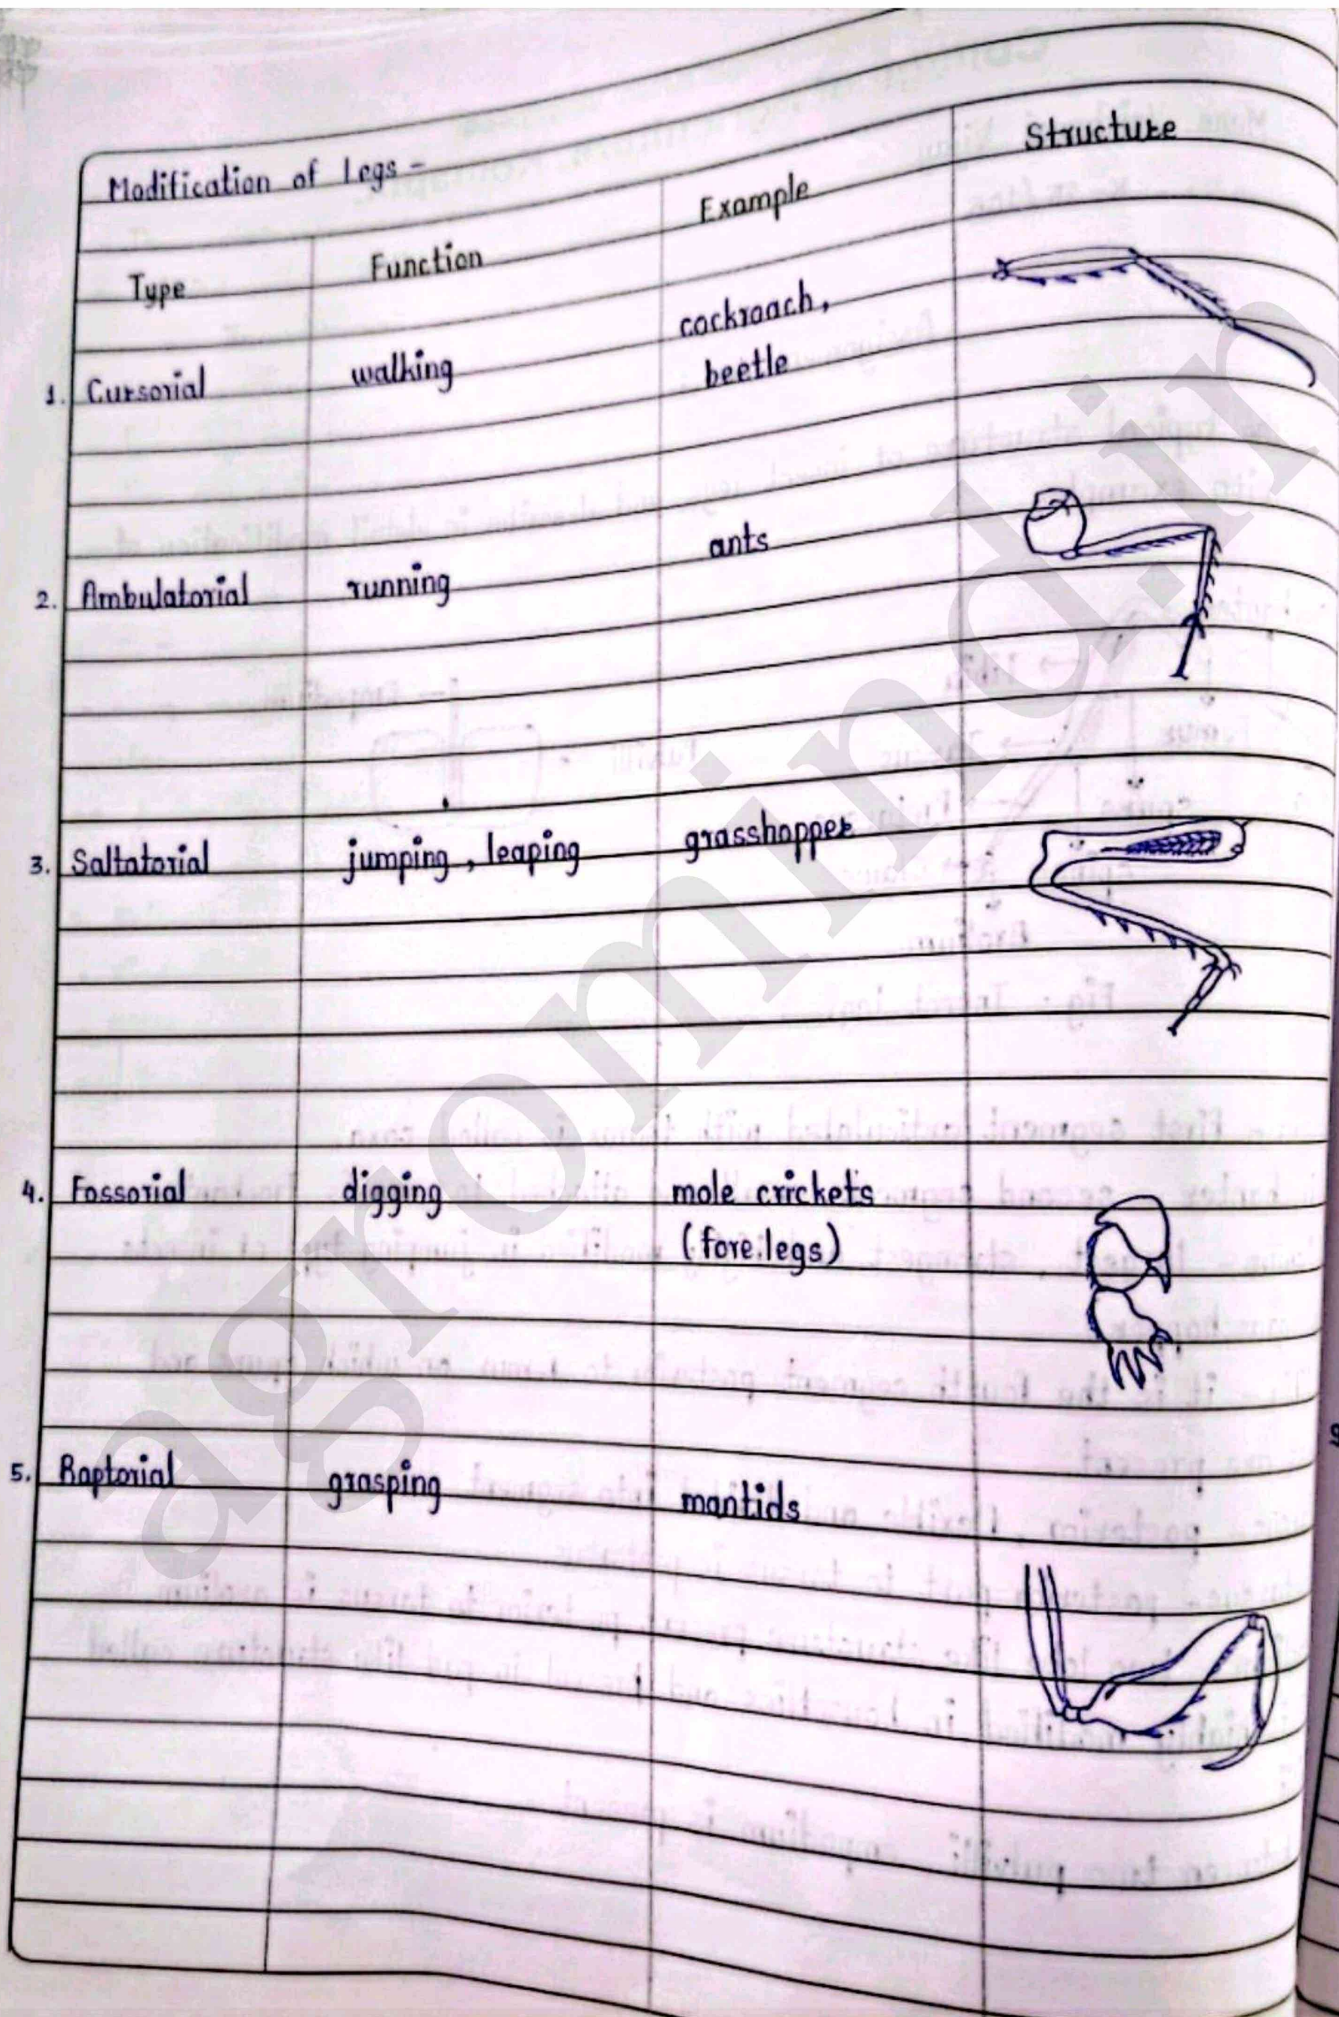 Modification of legs -
Type Function Example Structure
1. Cursorial walking cockroach,
beetle
2. Ambulatorial running ants
3. Saltatorial jumping, leaping grasshopper
4. Fossorial digging mole crickets
(fore legs)
5. Raptorial grasping mantids
agromind.in